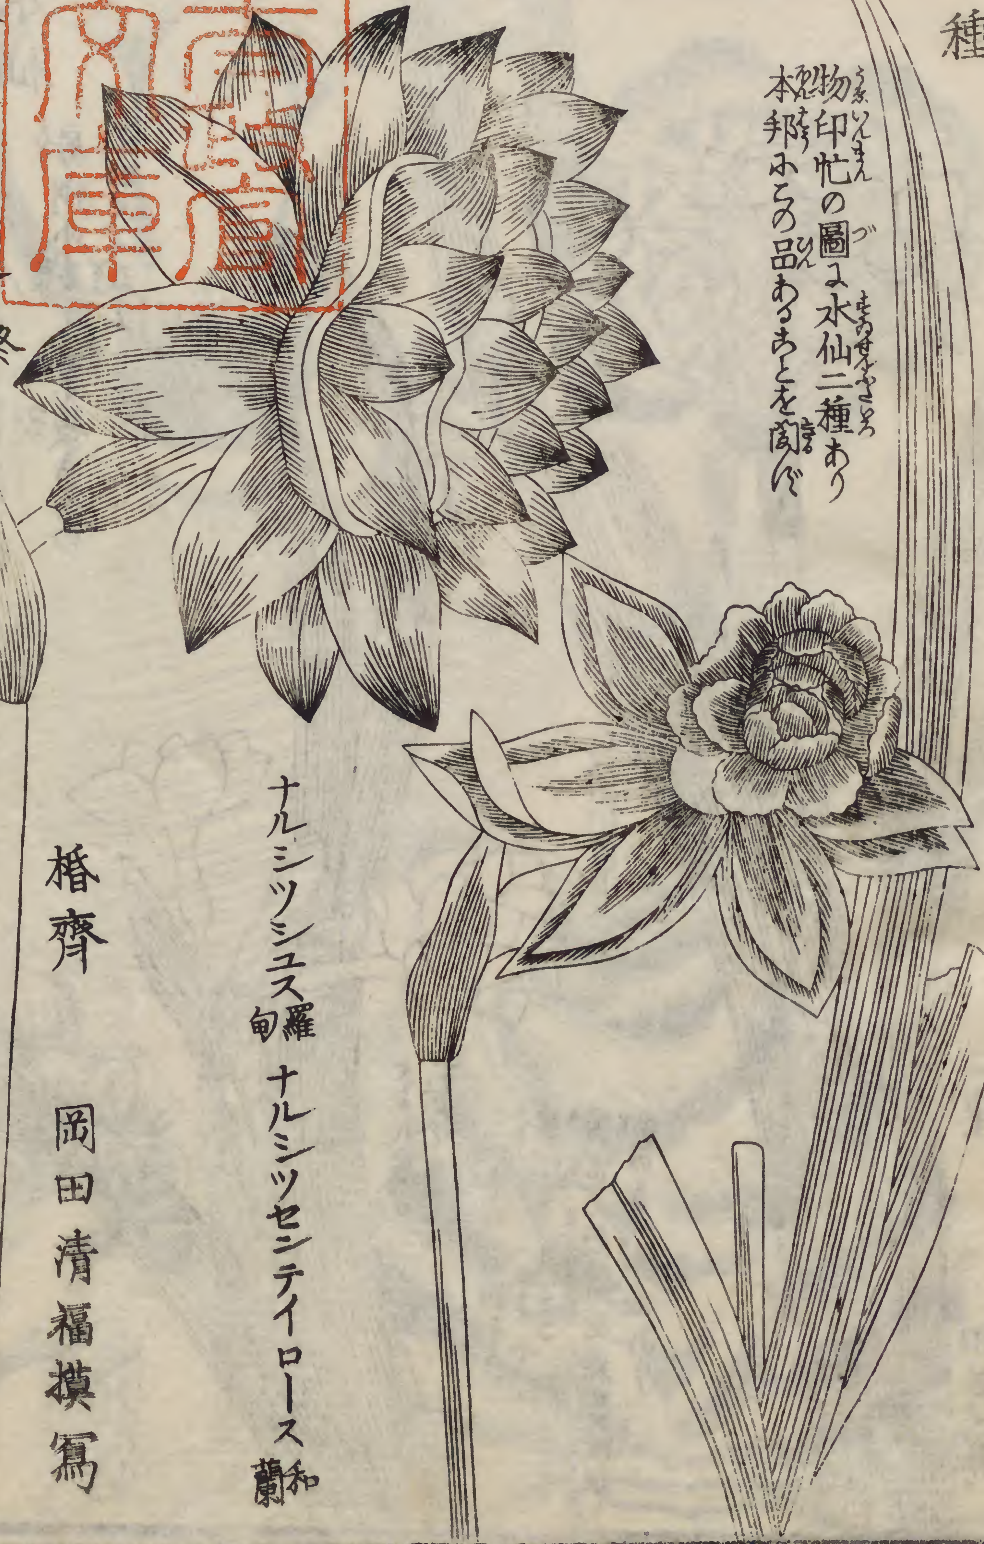 種
物印忙の圖に水仙二種あり
本邦にこの品あることを聞ず
ナルシツシユス羅甸 ナルシツセンテイロース和蘭
棔齊 岡田清福摸寫
文庫